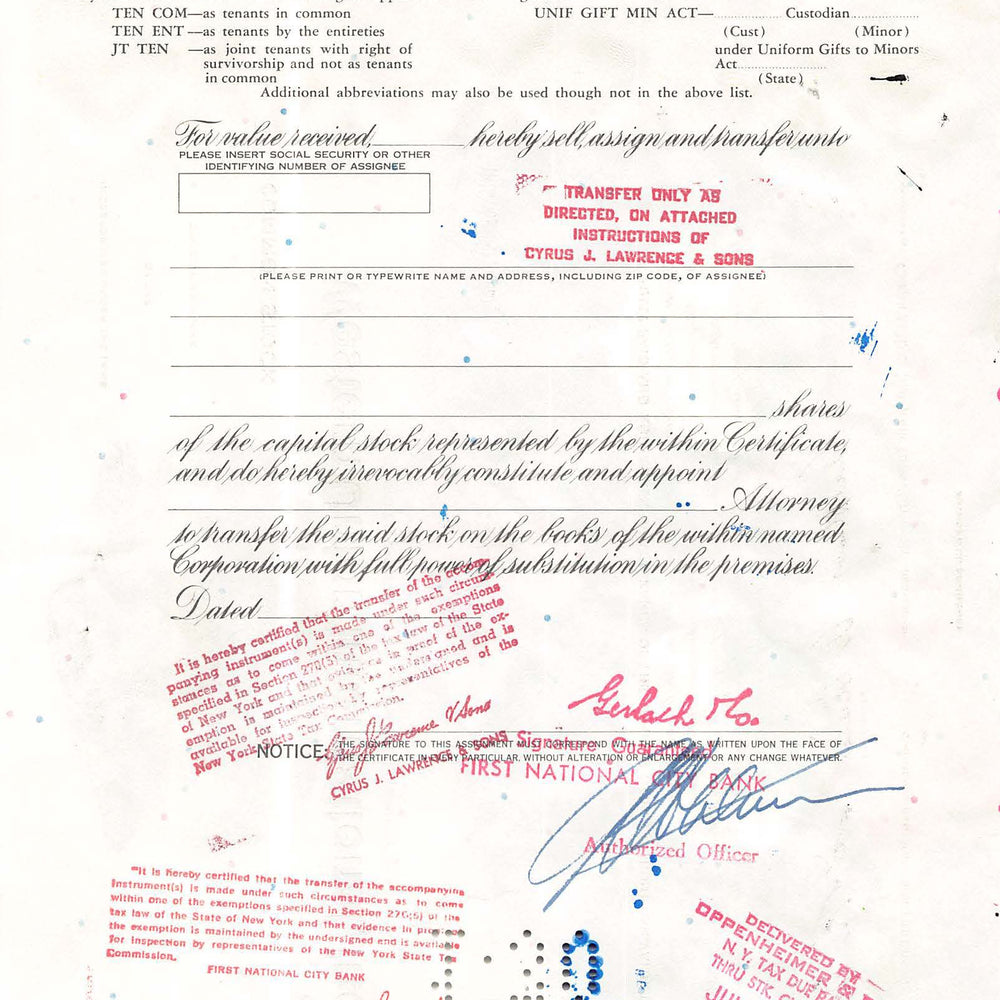 TEN COM—as tenants in common
UNIF GIFT MIN ACT—.......... Custodian..........
TEN ENT—as tenants by the entireties
(Cust) (Minor)
JT TEN —as joint tenants with right of
survivorship and not as tenants
in common
under Uniform Gifts to Minors
Act..........
(State)
Additional abbreviations may also be used though not in the above list.
For value received, hereby sell, assign and transfer unto
PLEASE INSERT SOCIAL SECURITY OR OTHER
IDENTIFYING NUMBER OF ASSIGNEE
TRANSFER ONLY AS
DIRECTED, ON ATTACHED
INSTRUCTIONS OF
CYRUS J. LAWRENCE & SONS
(PLEASE PRINT OR TYPEWRITE NAME AND ADDRESS, INCLUDING ZIP CODE, OF ASSIGNEE)
shares
of the capital stock represented by the within Certificate,
and do hereby irrevocably constitute and appoint
Attorney
to transfer the said stock on the books of the within named
Corporation with full power of substitution in the premises.
Dated
It is hereby certified that the transfer of the accom-
panying instrument(s) is made under such circum-
stances as to come within one of the exemptions
specified in Section 270(5) of the tax law of the State
of New York and that evidence in proof of the ex-
emption is maintained by the undersigned and is
available for inspection by representatives of the
New York State Tax Commission.
Cyrus J. Lawrence & Sons
CYRUS J. LAWRENCE & SONS
Gerlach & Co.
NOTICE: THE SIGNATURE TO THIS ASSIGNMENT MUST CORRESPOND WITH THE NAME AS WRITTEN UPON THE FACE OF
THE CERTIFICATE IN EVERY PARTICULAR, WITHOUT ALTERATION OR ENLARGEMENT OR ANY CHANGE WHATEVER.
Signature Guaranteed
FIRST NATIONAL CITY BANK
Authorized Officer
"It is hereby certified that the transfer of the accompanying
instrument(s) is made under such circumstances as to come
within one of the exemptions specified in Section 270(5) of the
tax law of the State of New York and that evidence in proof of
the exemption is maintained by the undersigned and is available
for inspection by representatives of the New York State Tax
Commission.
FIRST NATIONAL CITY BANK
DELIVERED BY
OPPENHEIMER &
N. Y. TAX DUE
THRU STK.